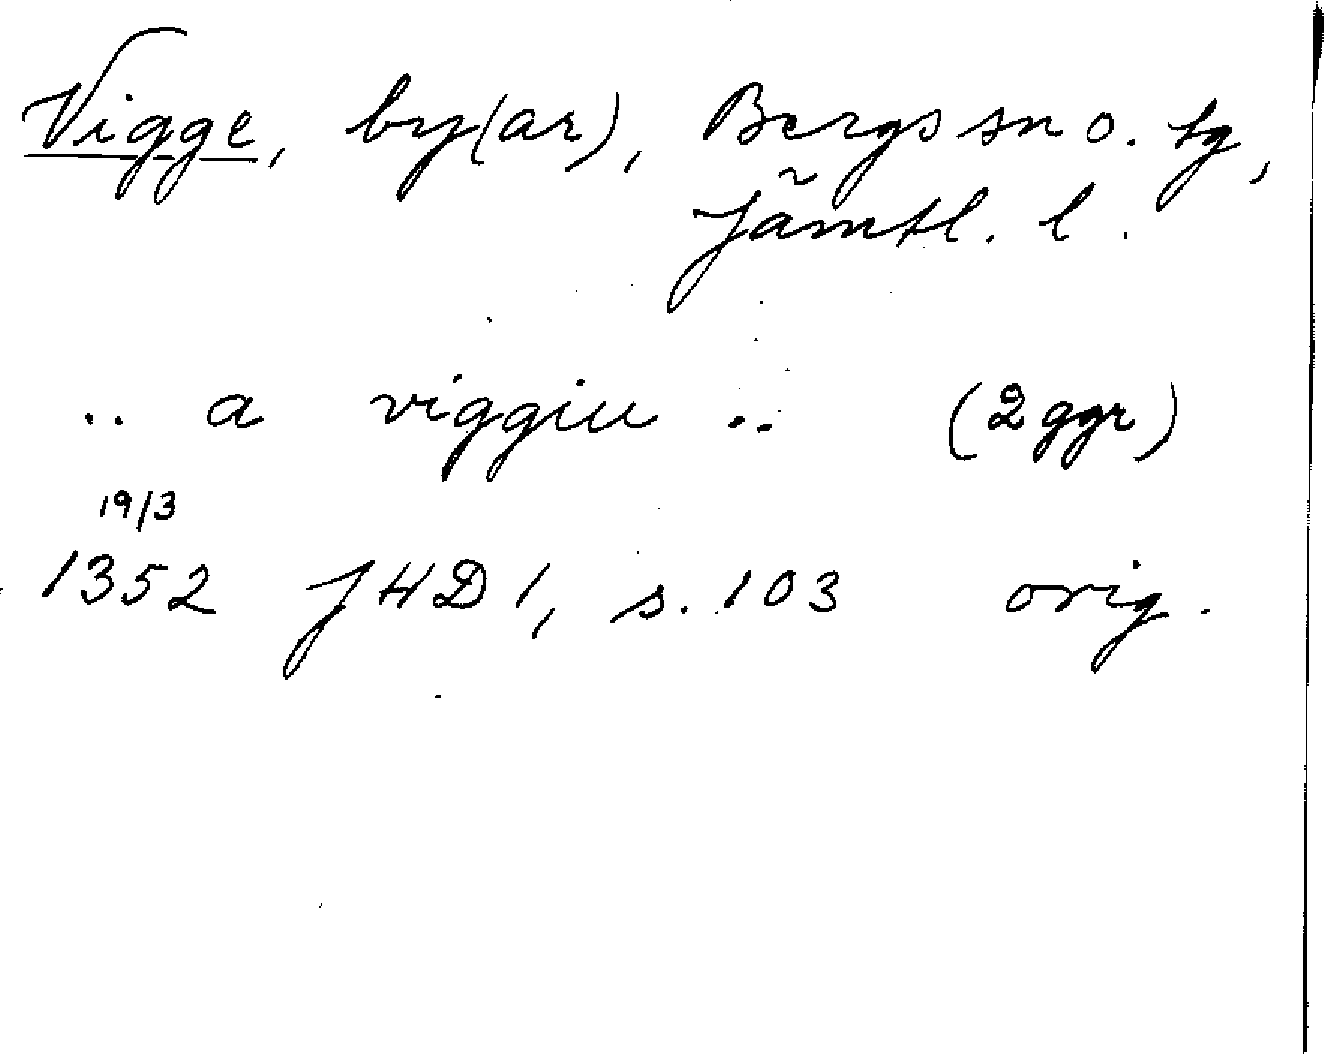 Vigge, by(ar), Bergs sn o. tg,
Jämtl. l.
.. a viggiu .. (2 ggr)
19/3
1352 JHD 1, s. 103 orig.